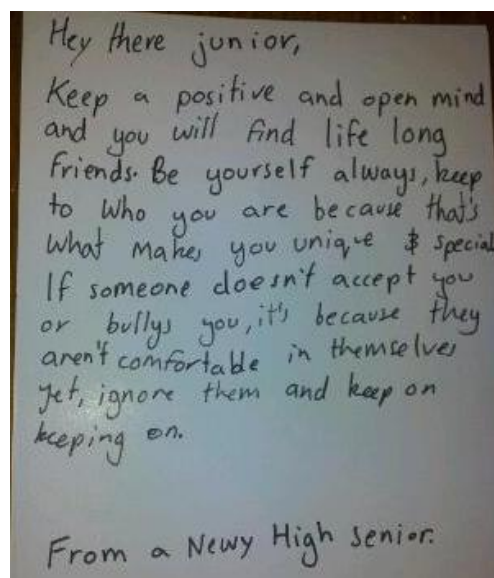 Hey there junior,
Keep a positive and open mind
and you will find life long
friends. Be yourself always, keep
to who you are because that's
what makes you unique & special
If someone doesn't accept you
or bullys you, it's because they
aren't comfortable in themselves
yet, ignore them and keep on
keeping on.
From a Newy High senior.